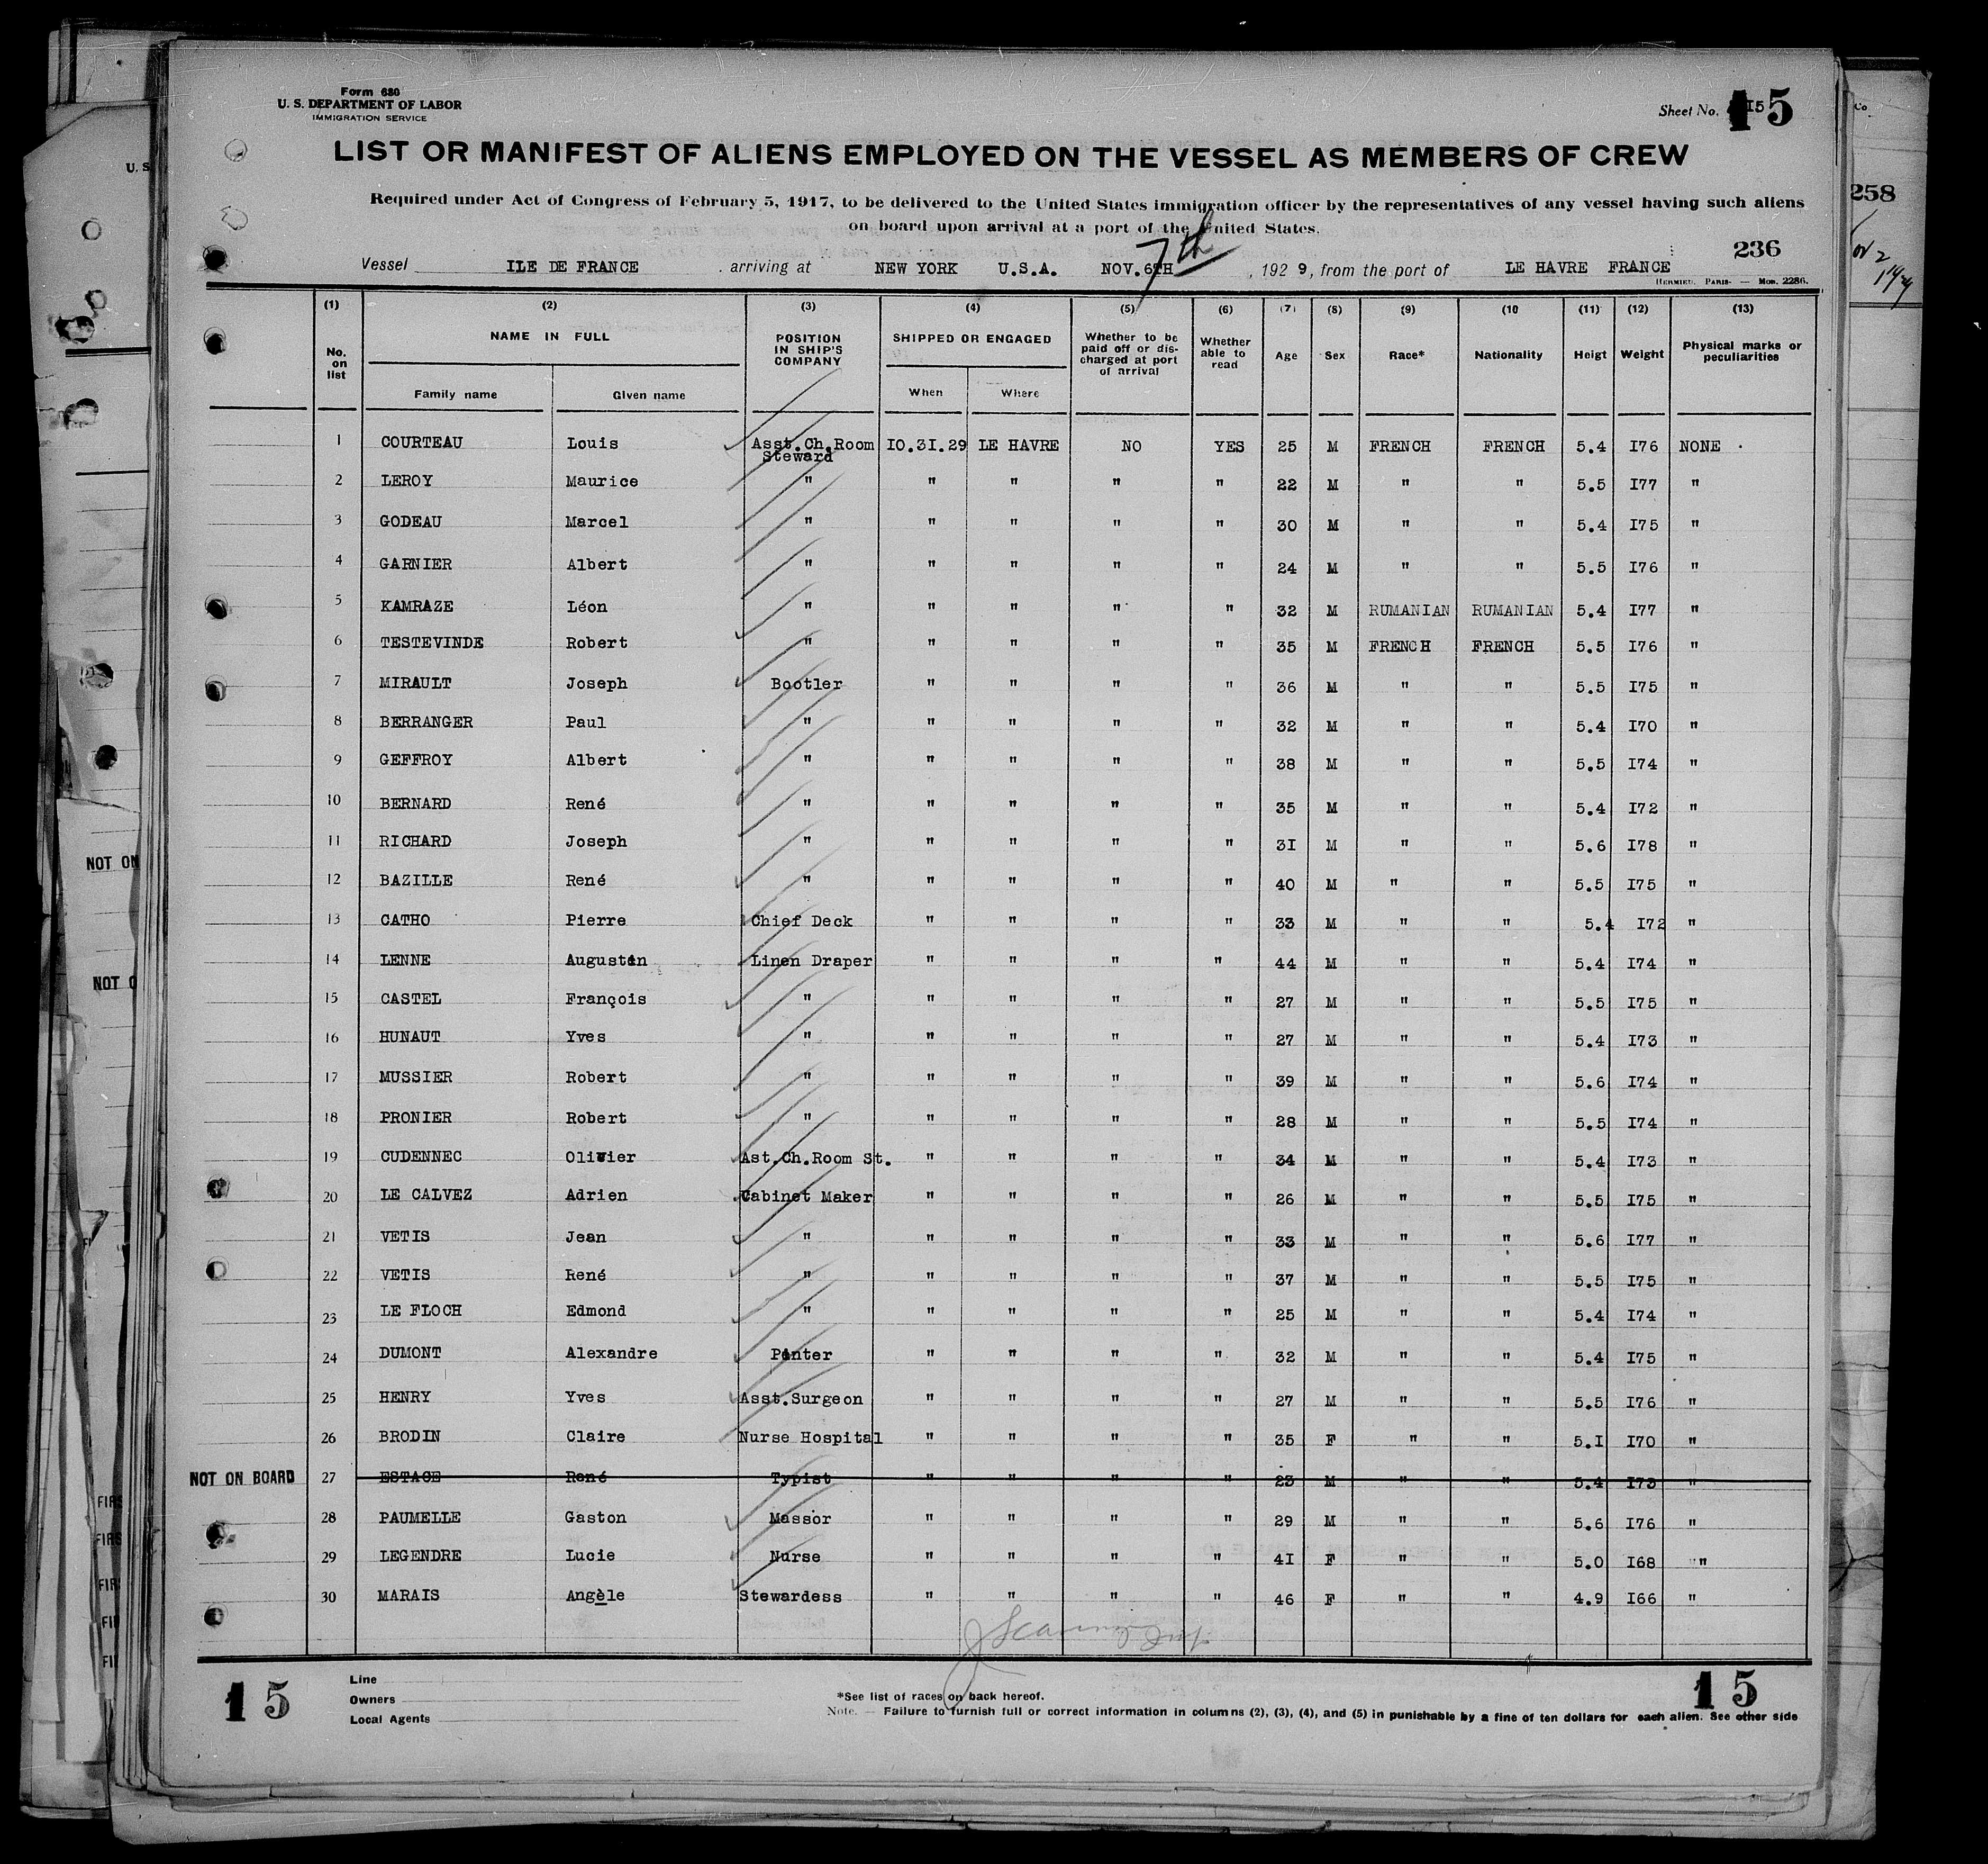 Form 680
U. S. DEPARTMENT OF LABOR
IMMIGRATION SERVICE
Sheet No. 15
15
LIST OR MANIFEST OF ALIENS EMPLOYED ON THE VESSEL AS MEMBERS OF CREW
Required under Act of Congress of February 5, 1917, to be delivered to the United States immigration officer by the representatives of any vessel having such aliens
on board upon arrival at a port of the United States.
236
7th
Vessel ILE DE FRANCE . arriving at NEW YORK U.S.A. NOV. 6TH , 192 9, from the port of LE HAVRE FRANCE
HERMIEU. PARIS- — MOD. 2286.
(1) (2) (3) (4) (5) (6) (7) (8) (9) (10 (11) (12) (13)
No. on list NAME IN FULL POSITION IN SHIP'S COMPANY SHIPPED OR ENGAGED Whether to be paid off or discharged at port of arrival Whether able to read Age Sex Race* Nationality Heigt Weight Physical marks or peculiarities
Family name Given name When Where
1 COURTEAU Louis Asst.Ch.Room Steward 10.31.29 LE HAVRE NO YES 25 M FRENCH FRENCH 5.4 I76 NONE
2 LEROY Maurice " " " " " 22 M " " 5.5 I77 "
3 GODEAU Marcel " " " " " 30 M " " 5.4 I75 "
4 GARNIER Albert " " " " " 24 M " " 5.5 I76 "
5 KAMRAZE Léon " " " " " 32 M RUMANIAN RUMANIAN 5.4 I77 "
6 TESTEVINDE Robert " " " " " 35 M FRENCH FRENCH 5.5 I76 "
7 MIRAULT Joseph Bootler " " " " 36 M " " 5.5 I75 "
8 BERRANGER Paul " " " " " 32 M " " 5.4 I70 "
9 GEFFROY Albert " " " " " 38 M " " 5.5 I74 "
10 BERNARD René " " " " " 35 M " " 5.4 I72 "
11 RICHARD Joseph " " " " " 3I M " " 5.6 I78 "
12 BAZILLE René " " " " " 40 M " " 5.5 I75 "
13 CATHO Pierre Chief Deck " " " " 33 M " " 5.4 I72 "
14 LENNE Augustin Linen Draper " " " " 44 M " " 5.4 I74 "
15 CASTEL François " " " " " 27 M " " 5.5 I75 "
16 HUNAUT Yves " " " " " 27 M " " 5.4 I73 "
17 MUSSIER Robert " " " " " 39 M " " 5.6 I74 "
18 PRONIER Robert " " " " " 28 M " " 5.5 I74 "
19 CUDENNEC Olivier Ast.Ch.Room St. " " " " 34 M " " 5.4 I73 "
20 LE CALVEZ Adrien Cabinet Maker " " " " 26 M " " 5.5 I75 "
21 VETIS Jean " " " " " 33 M " " 5.6 I77 "
22 VETIS René " " " " " 37 M " " 5.5 I75 "
23 LE FLOCH Edmond " " " " " 25 M " " 5.4 I74 "
24 DUMONT Alexandre Pinter " " " " 32 M " " 5.4 I75 "
25 HENRY Yves Asst.Surgeon " " " " 27 M " " 5.5 I76 "
26 BRODIN Claire Nurse Hospital " " " " 35 F " " 5.I I70 "
NOT ON BOARD 27 ESTACE René Typist " " " " 23 M " " 5.4 I73 "
28 PAUMELLE Gaston Massor " " " " 29 M " " 5.6 I76 "
29 LEGENDRE Lucie Nurse " " " " 4I F " " 5.0 I68 "
30 MARAIS Angèle Stewardess " " " " 46 F " " 4.9 I66 "
15
Line
Owners
Local Agents
*See list of races on back hereof.
Note. — Failure to furnish full or correct information in columns (2), (3), (4), and (5) in punishable by a fine of ten dollars for each alien. See other side
15
U. S
NOT ON
NOT O
FIRS
FIRS
FIR
FI
FI
Co
258